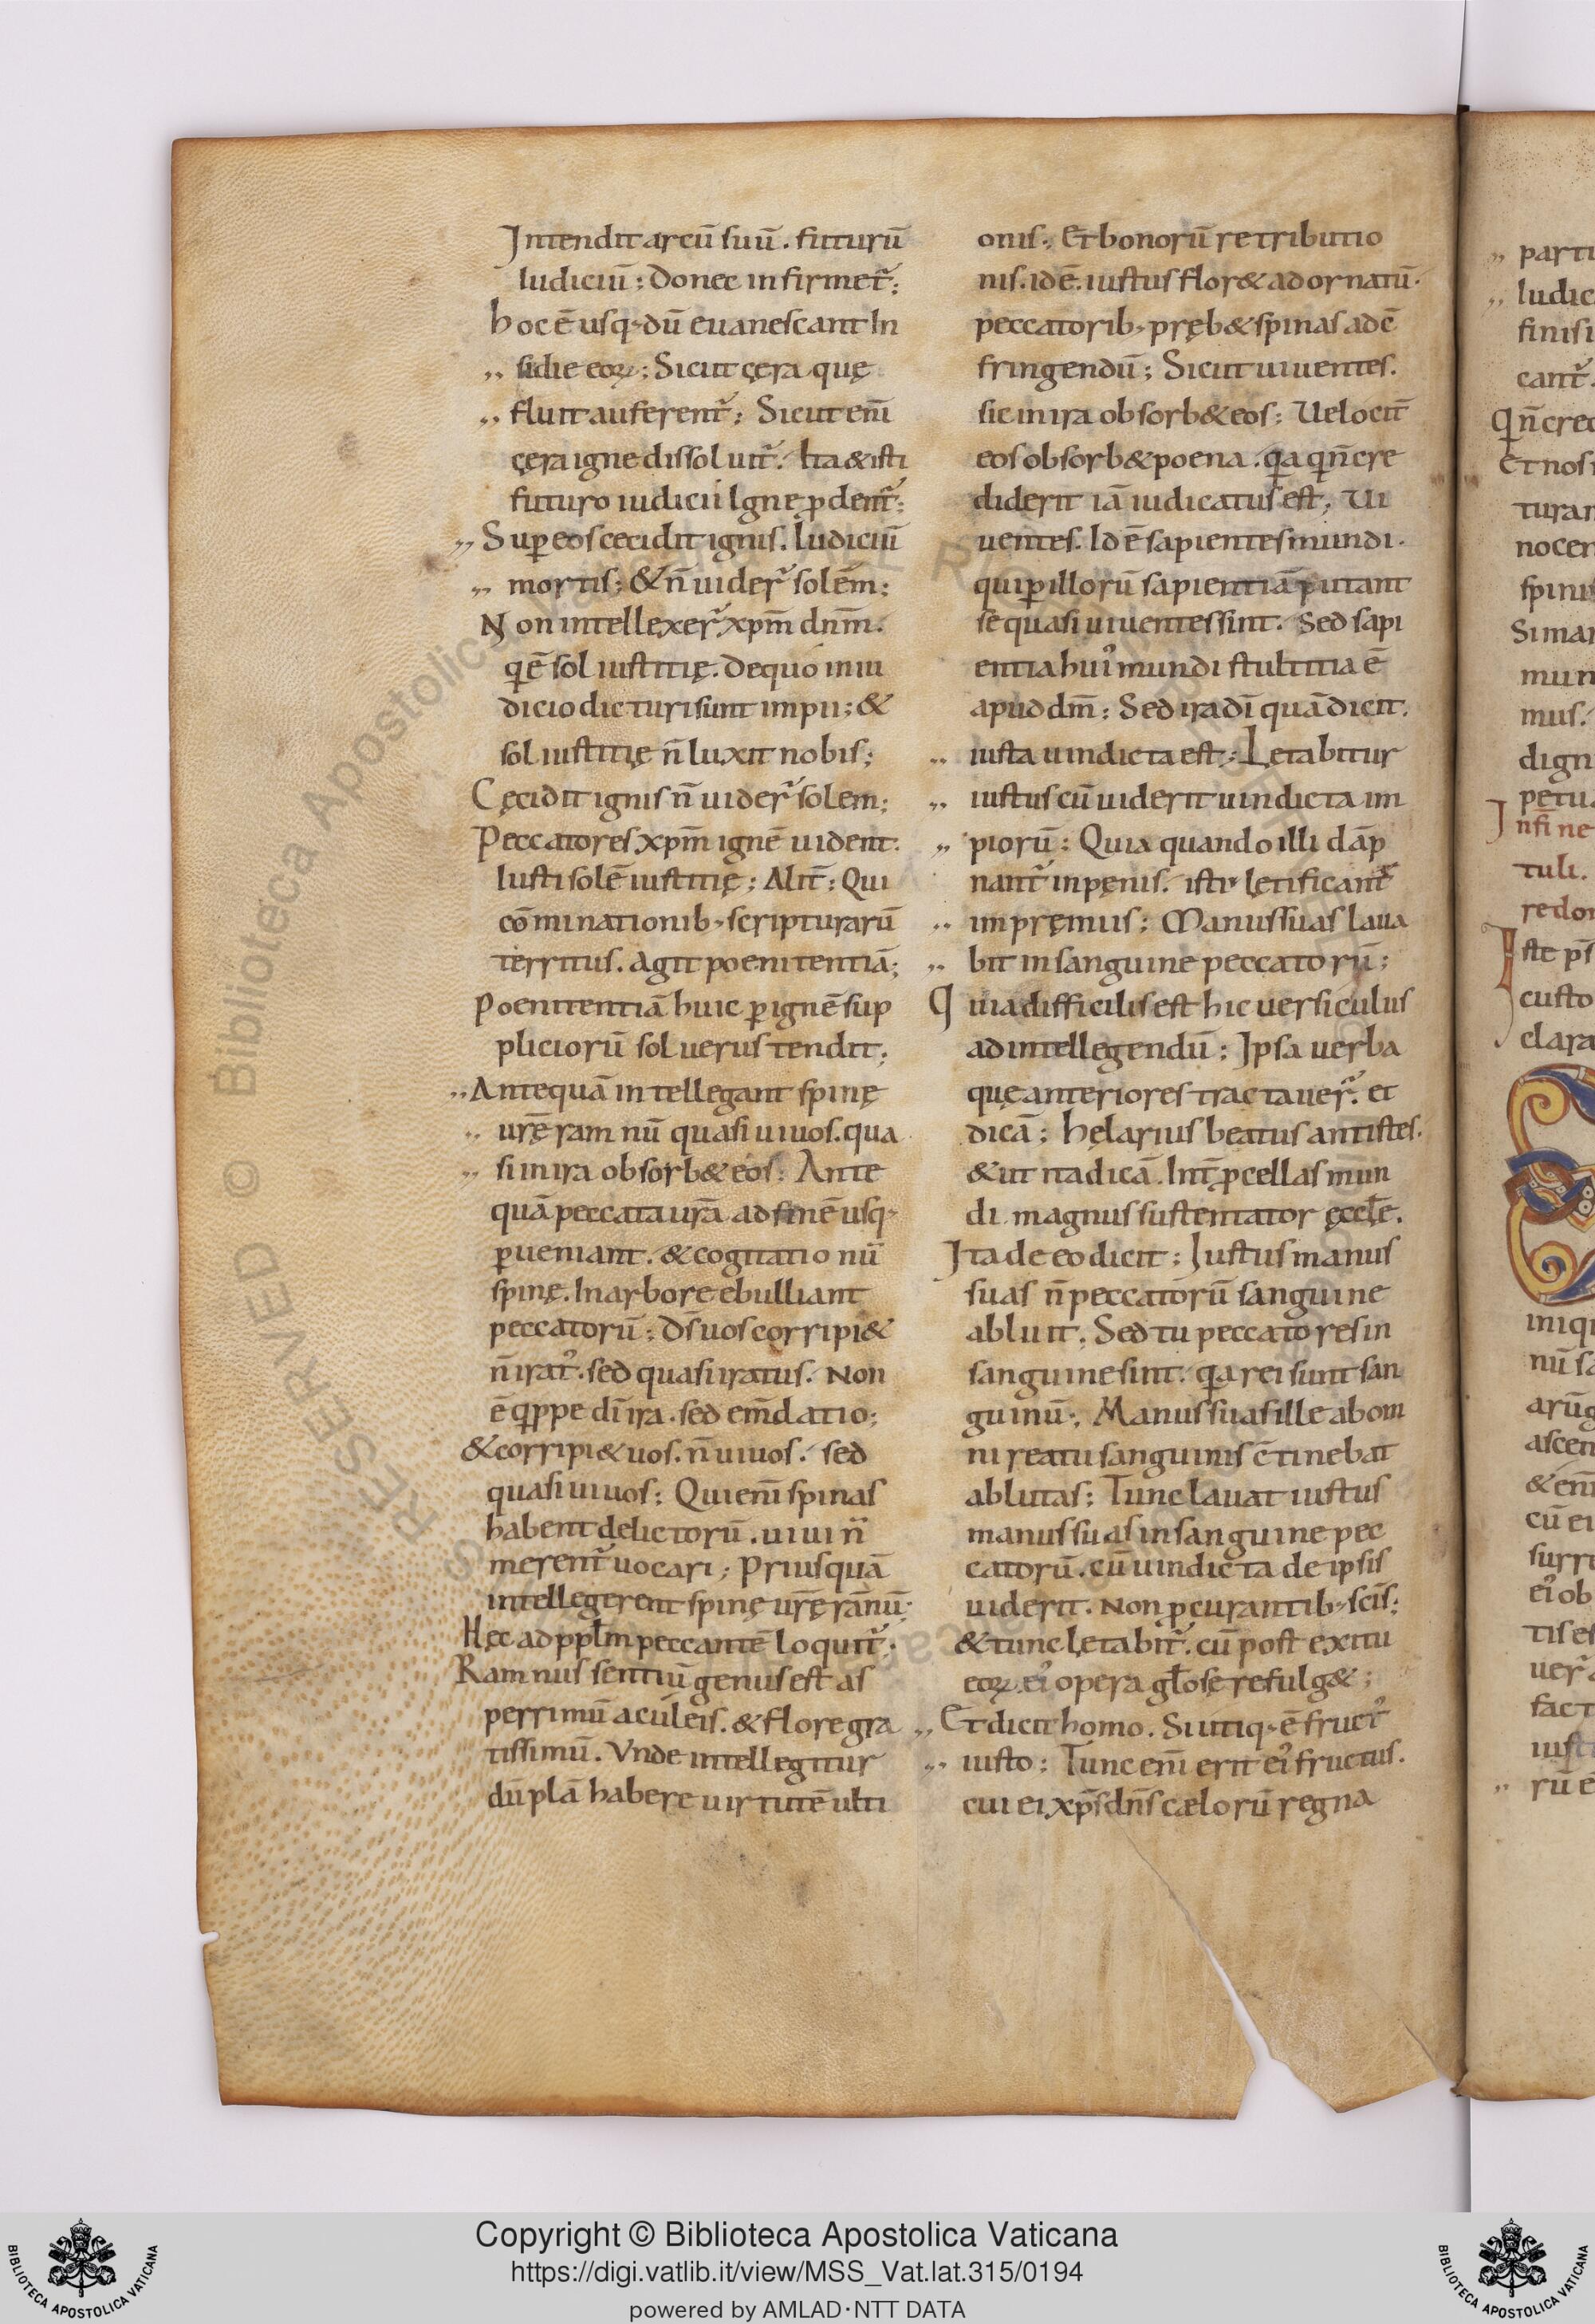 Intendit arcū suū. futurū
Iudiciū; Donec infirmet̄;
hoc ē usq; dū euanescant In
,, sidie eoꝝ; Sicut cęra quę
,, fluit auferent̄; Sicut eni̅
cęra igne dissoluit̄. Ita & isti
futuro iudicii Igne ꝑdent̄;
,, Suꝑ eos cecidit ignis. Iudiciū
,, mortis; & n̄ uider̄ solēm;
Non intellexer̄ xp̄m dn̄m.
q̄ ē sol iustitię. De quo in iu
dicio dicturi sunt impii; &
sol iustitię n̄ luxit nobis;
Cęcidit ignis n̄ uider̄ solem;
Peccatores xp̄m ignē uident.
Iusti solē iustitię; Alit̄; Qui
cōminationib; scripturarū
territus. Agit poenitentiā;
Poenitentiā huic ꝑ ignē sup
pliciorū sol uerus tendit;
,, Antequā intellegant spinę
,, urę̄ ramnū quasi uiuos. qua
,, si in ira obsorb& eos; Ante
quā peccata ur̄a ad finē usq;
ꝑueniant. & cogitatio nū
spinę. In arbore ebulliant
peccatorū; Ds̄ uos corripi&
n̄ irat᾽. sed quasi iratus. Non
ē q̄ppe dī ira. sed em̄datio;
& corripi& uos. n̄ uiuos. sed
quasi uiuos; Qui eni̅ spinas
habent delictorū. uiui n̄
merent̄ uocari; Priusquā
intellegerent spinę urę̄ rānū;
Hęc ad ppl̄m peccantē loquit̄;
Ramnus sentiū genus est as
perrimū aculeis. & flore gra
tissimū. Vnde intellegitur
duplā habere uirtutē ulti
onis; Et bonorū retributio
nis. id ē. iustus flor& ad ornatū.
peccatorib; pręb& spinas ad ē
fringendū; Sicut uiuentes.
sic in ira obsorb& eos; Uelocit̄
eos obsorb& poena. q̄a q̄ n̄ cre
diderit iā iudicatus est; Ui
uentes. Id ē sapientes mundi.
qui ꝑ illorū sapientiā putant
se quasi uiuentes sint. Sed sapi
entia hui᾽ mundi stultitia ē
apud dm̄; Sed ira dī quā dicit.
,, iusta uindicta est; Lętabitur
,, iustus cū uiderit uindicta im
,, piorū; Quia quando illi dāp
nant̄ in pęnis. isti lętificant̄
,, im pręmiis; Manus suas laua
,, bit in sanguine peccatorū;
Quia difficilis est hic uersiculus
ad intellegendū; Ipsa uerba
quę anteriores tractauer̄. et
dicā; helarius beatus antistes.
& ut ita dicā. Int̄ ꝓcellas mun
di. magnus sustentator ęccl̄e.
Ita de eo dicit; Iustus manus
suas n̄ peccatorū sanguine
abluit. Sed tu peccatores in
sanguine sint. q̄a rei sunt san
guinū; Manus suas ille ab om
ni reatu sanguinis c̄tinebat
ablutas; Tunc lauat iustus
manus suas in sanguine pec
catorū. cū uindicta de ipsis
uiderit. Non ꝓcurantib; scīs;
& tunc lętabit̄. cū post exitu
eoꝝ. ei᾽ opera gl̄ose refulg&;
,, Et dicit homo. Si utiq; ē fruct᾽
,, iusto; Tunc eni̅ erit ei᾽ fructus.
cui ei xp̄s dn̄s cælorū regna
,, parti
,, Iudic
finisi
cant̄.
Q n̄ cred
Et nos
turar
nocen
spini
Si mar
mun
mus.
digni
petua
In fine
tuli.
redor
Iste ps̄
custo
clara
iniqi
nū sa
arūg
ascen
& eni̅
cū ei
surre
ei᾽ ob
tis es
uer̄
fact
iusti
,, rū ē
RESERVED © Biblioteca Apostolica Vaticana
Copyright © Biblioteca Apostolica Vaticana
https://digi.vatlib.it/view/MSS_Vat.lat.315/0194
powered by AMLAD·NTT DATA
BIBLIOTECA APOSTOLICA VATICANA
BIBLIOTECA APOSTOLICA VATICANA